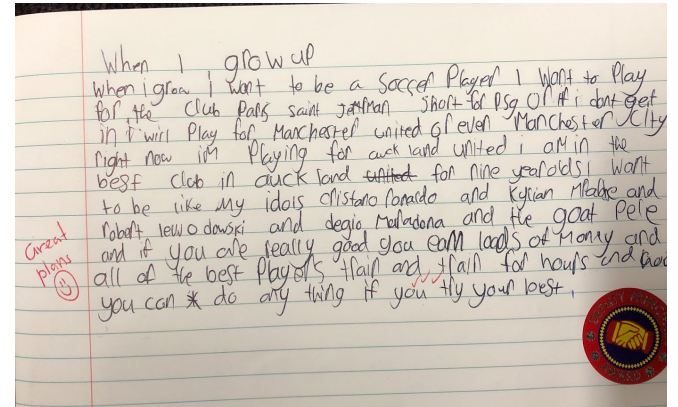 When I grow up
when i grow I want to be a Soccer Player I Want to Play
for the Club Paris saint jerman short for Psg Or if i dont get
in I will Play for Manchester united or even Manchester City
right now im Playing for auckland united i am in the
best Club in auckland united for nine yearolds i want
to be like my idols cristano ronaldo and Kylian Mbabe and
robert lewodowski and degio Maradona and the goat Pele
and if you are really good you earn loads of money and
all of the best Players train and train for hours and
you can do any thing if you try your best.
Great
plans